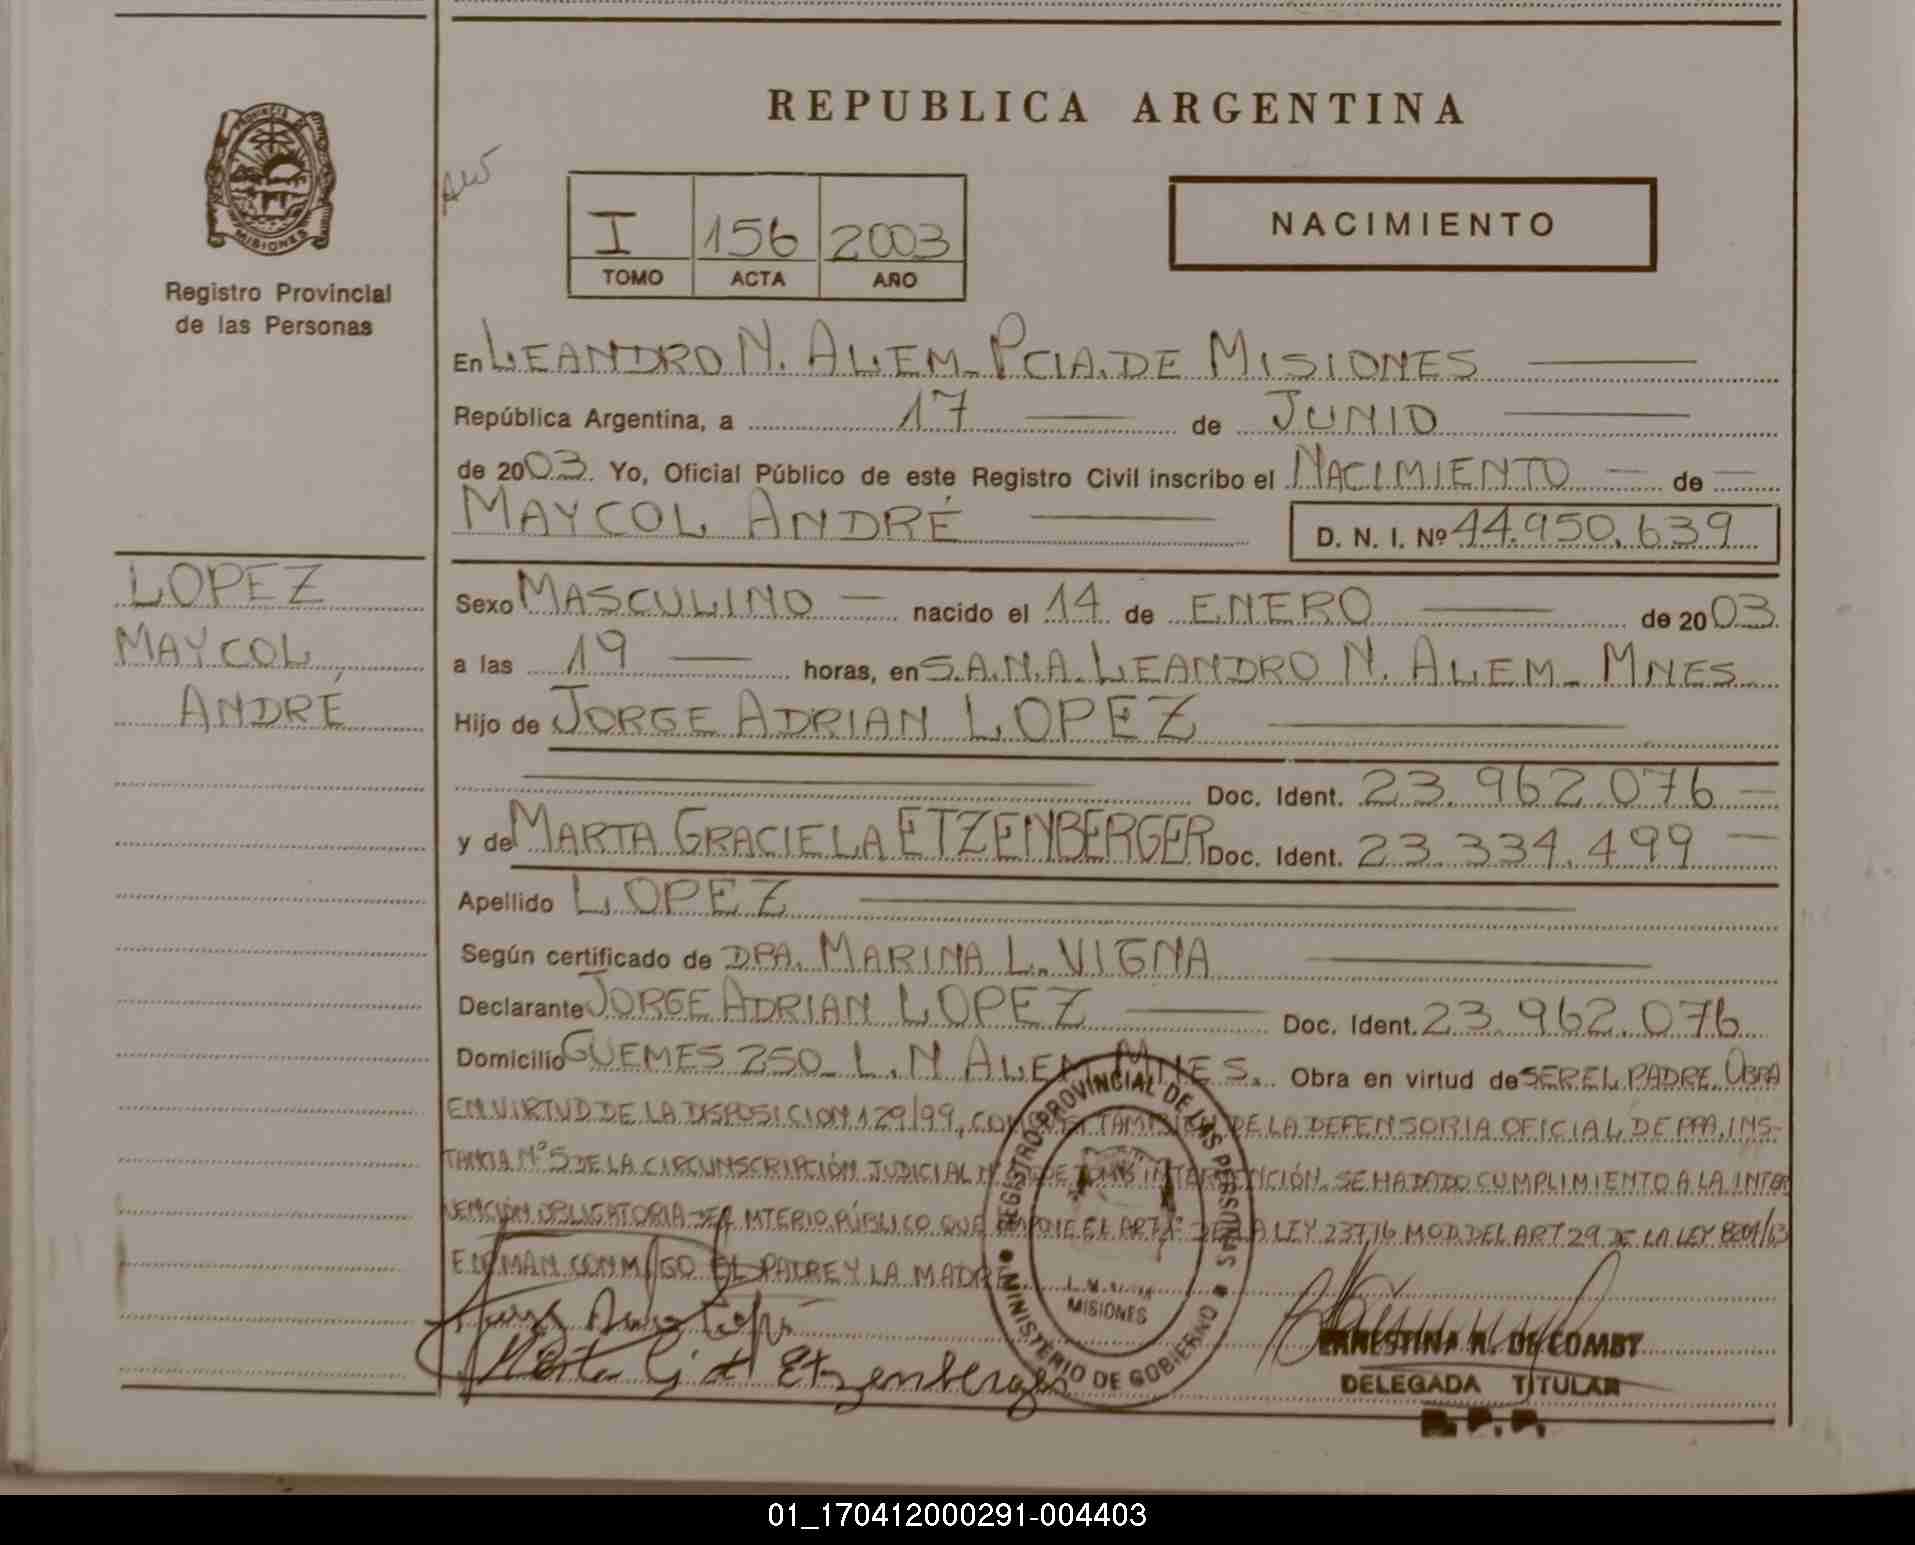 REPUBLICA ARGENTINA
PROVINCIA DE
MISIONES
Registro Provincial
de las Personas
I 156 2003
TOMO ACTA AÑO
NACIMIENTO
En LEANDRO N. ALEM. PCIA. DE MISIONES
República Argentina, a 17 de JUNIO
de 2003. Yo, Oficial Público de este Registro Civil inscribo el NACIMIENTO de
MAYCOL ANDRÉ D. N. I. Nº 44.950.639
LOPEZ
MAYCOL
ANDRÉ
Sexo MASCULINO nacido el 14 de ENERO de 2003
a las 19 horas, en S.A.N.A. LEANDRO N. ALEM. MNES.
Hijo de JORGE ADRIAN LOPEZ
Doc. Ident. 23.962.076
y de MARTA GRACIELA ETZENBERGER Doc. Ident. 23.334.499
Apellido LOPEZ
Según certificado de DRA. MARINA L. VIGNA
Declarante JORGE ADRIAN LOPEZ Doc. Ident. 23.962.076
Domicilio GUEMES 250. L.N ALEM MNES. Obra en virtud de SER EL PADRE. OBRA
EN VIRTUD DE LA DISPOSICION 129/99, DE LA DEFENSORIA OFICIAL DE PRA. INS-
TANCIA Nº 5 DE LA CIRCUNSCRIPCIÓN JUDICIAL INTERVENCIÓN. SE HA DADO CUMPLIMIENTO A LA INTER
VENCIÓN OBLIGATORIA DEL MTERIO PÚBLICO QUE IMPONE EL ART 1º DE LA LEY 23776 MOD. DEL ART 29 DE LA LEY 8204/63
FIRMAN CONMIGO EL PADRE Y LA MADRE
REGISTRO PROVINCIAL DE LAS PERSONAS
MISIONES
MINISTERIO DE GOBIERNO
Etzenberger
ERNESTINA R. DE COMBY
DELEGADA TITULAR
R. P. P.
01_170412000291-004403